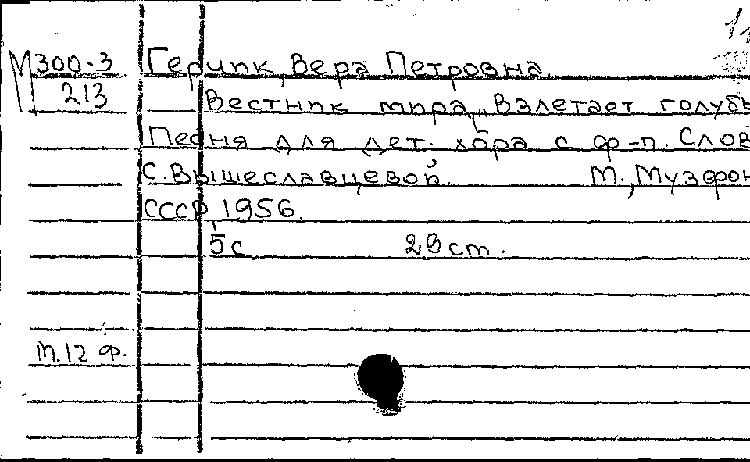 М300-3 Герчик, Вера Петровна
213 Вестник мира „Взлетает голубь
Песня для дет. хора с ф-п. Слов
С. Вышеславцевой. М., Музфон
СССР, 1956.
5с 28см.
т.12 ф.